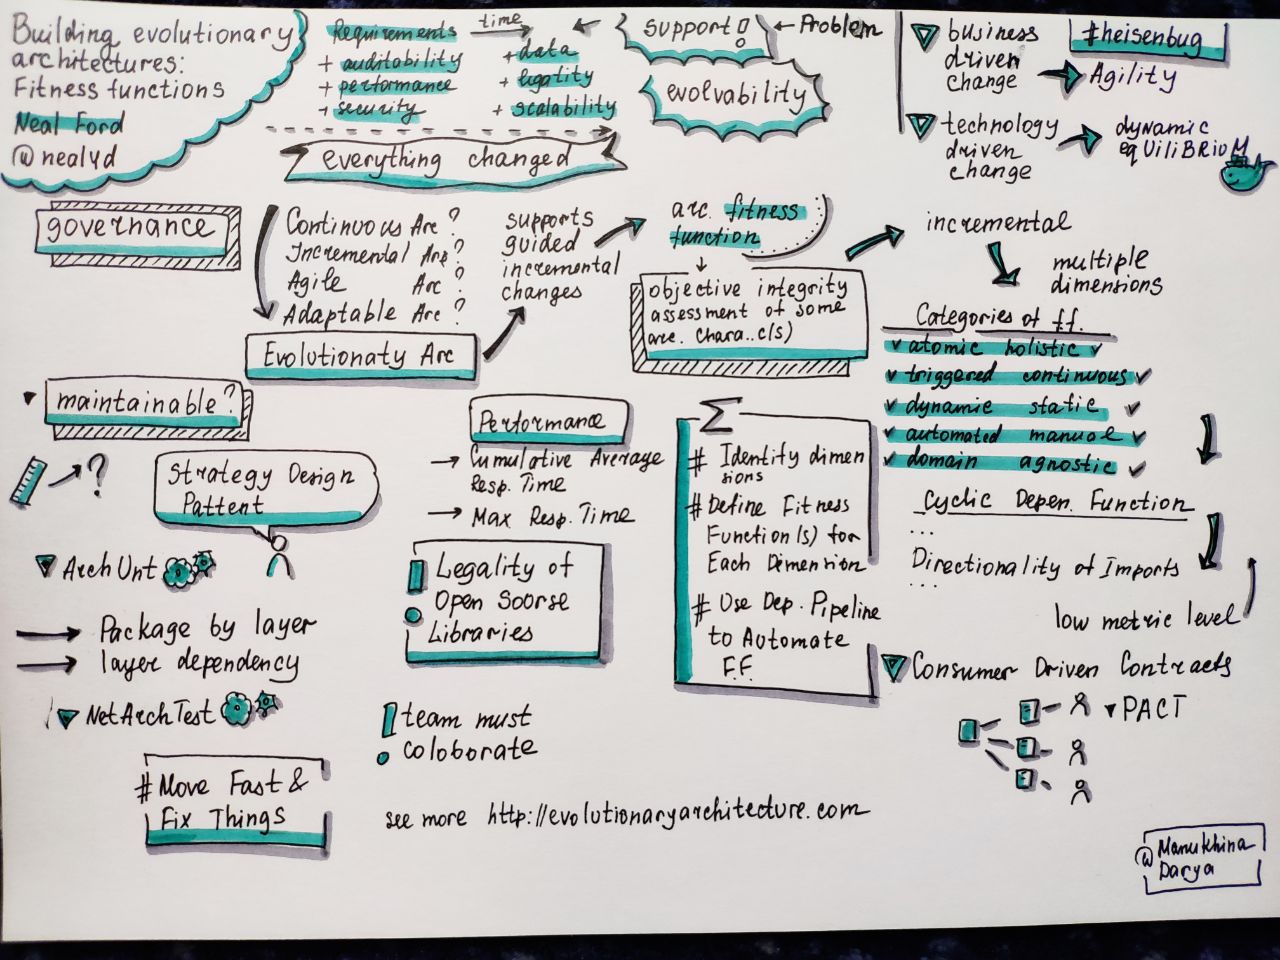 Building evolutionary
architectures:
Fitness functions
Neal Ford
@neal4d
Requirements
+ auditability
+ performance
+ security
time
+ data
+ legality
+ scalability
everything changed
support!
← Problem
evolvability
business
driven
change
Agility
technology
driven
change
dynamic
eqUiliBRioM
#heisenbug
governance
Continuous Arc?
Incremental Arc?
Agile Arc?
Adaptable Arc?
Evolutionaty Arc
supports
guided
incremental
changes
arc. fitness
function
objective integrity
assessment of some
arc. chara..c(s)
incremental
multiple
dimensions
Categories of f.f.
✓ atomic holistic ✓
✓ triggered continuous ✓
✓ dynamic static ✓
✓ automated manual ✓
✓ domain agnostic ✓
Cyclic Depen. Function
...
Directionality of Imports
...
low metric level
maintainable?
?
Strategy Design
Pattent
ArchUnt
Package by layer
layer dependency
NetArchTest
# Move Fast &
Fix Things
Performance
→ Cumulative Average
Resp. Time
→ Max Resp. Time
Legality of
Open Soorse
Libraries
! team must
coloborate
Σ
# Identity dimen
sions
# Define Fitness
Function(s) for
Each Dimension
# Use Dep. Pipeline
to Automate
F.F.
Consumer Driven Contracts
PACT
see more http://evolutionaryarchitecture.com
@Manukhina
Darya